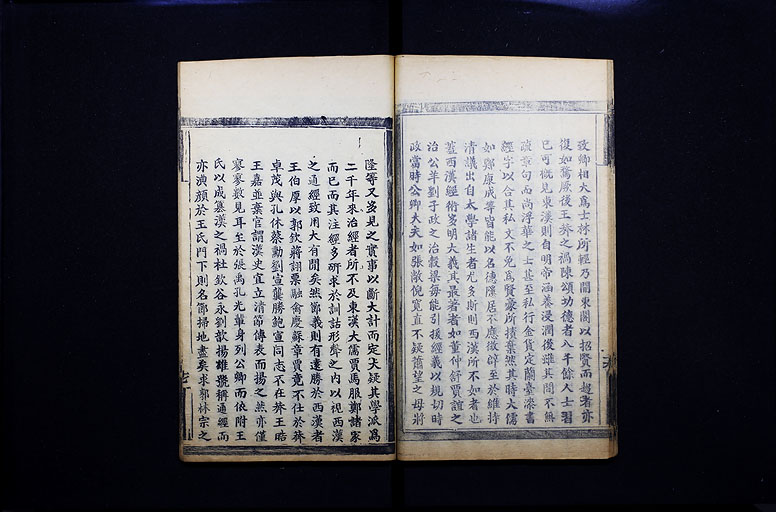 致卿相大爲士林所輕乃開東閣以招賢而趨者亦
復如鶩厥後王莽之禍陳頌功德者八千餘人士習
已可概見東漢則自明帝涵養浸潤後雖其間不無
疏章句而尚浮華之士甚至私行金貨定蘭臺漆書
經字以合其私文不免爲賢豪所擯棄然其時大儒
如鄭康成輩皆能以名德隱居不應徵辟至於維持
清議出自太學諸生者尤多斯則西漢所不如者也
蓋西漢經術多明大義其最著者如董仲舒賈誼之
治公羊劉子政之治穀梁每能引援經義以規切時
政當時公卿大夫如張敞倪寬直不疑蕭望之毋將
隆等又多見之實事以斷大計而定大疑其學派爲
二千年來治經者所不及東漢大儒賈馬服鄭諸家
而已而其注經多研求於訓詁形聲之內以視西漢
之通經致用大有間矣然節義則有遠勝於西漢者
王伯厚以郭欽蔣詡栗融禽慶蘇章曹竟不仕於莽
卓茂與孔休蔡勳劉宣龔勝鮑宣同志不在莽王皓
王嘉並棄官謂漢史宜立清節傳表而揚之然亦僅
寥寥數見耳至於張禹孔光輩身列公卿而依附王
氏以成篡漢之禍杜欽谷永劉歆揚雄號稱通經而
亦澳顏於王氏門下則名節掃地盡矣求郭林宗之